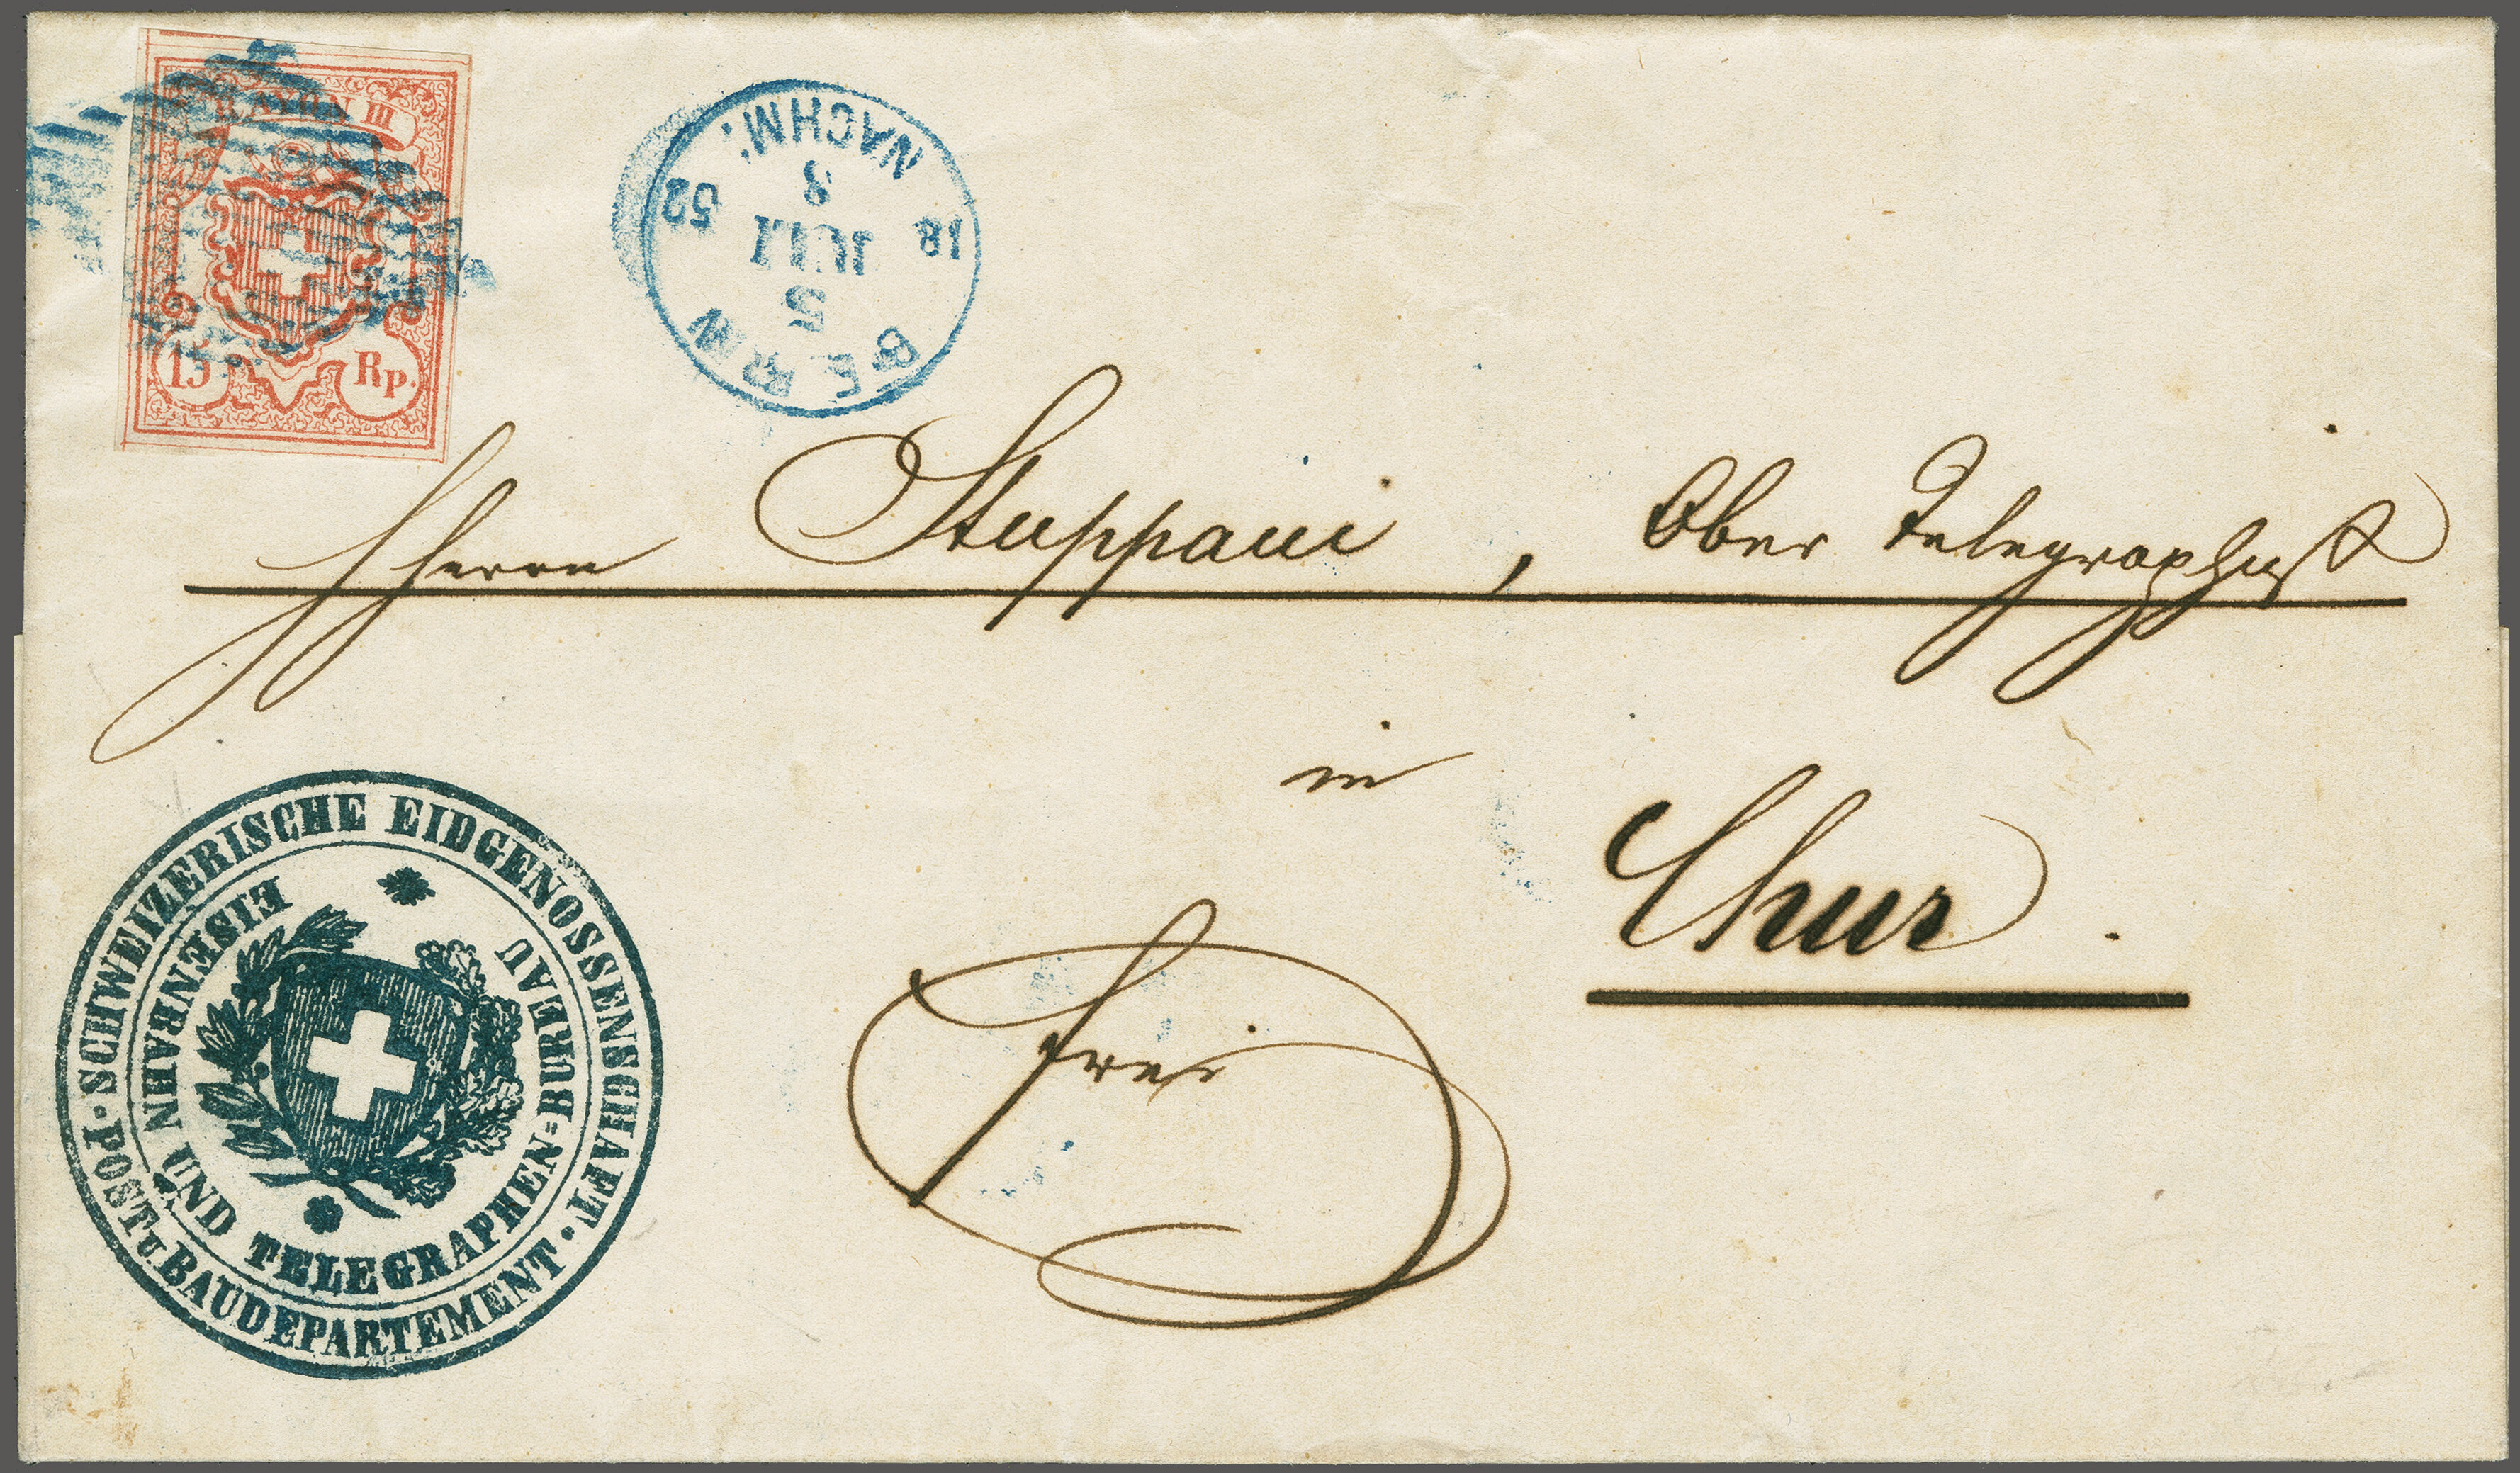 RAYON III
15 Rp.
BERN
5
JULI
8
NACHM.
18 52
Herrn Stuppani, Ober Telegraphist
in
Chur.
Frei
SCHWEIZERISCHE EIDGENOSSENSCHAFT.
POST u. BAUDEPARTEMENT.
EISENBAHN UND TELEGRAPHEN=BUREAU